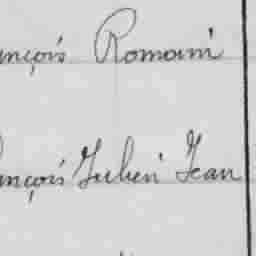 ançois Romain
ançois Julien Jean